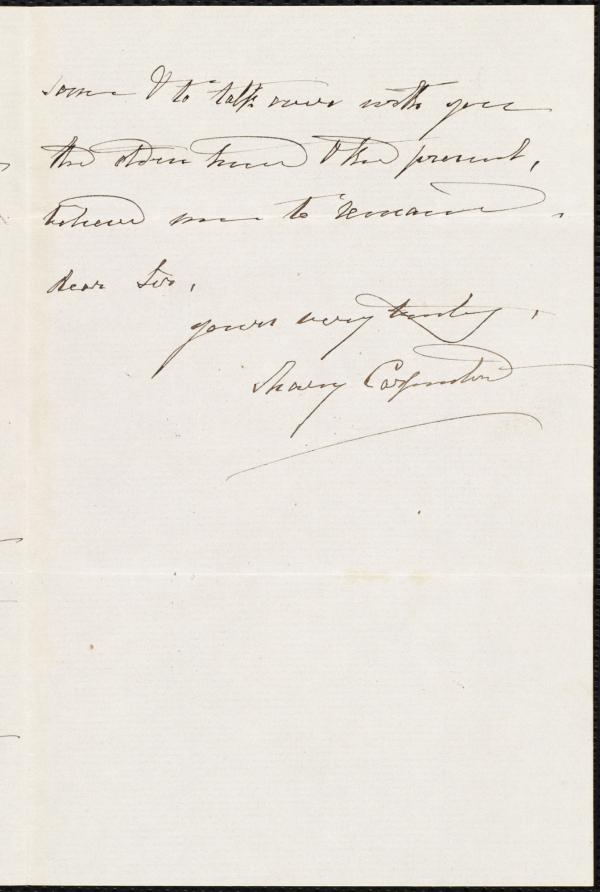 soon & to talk over with you
the olden time & the present,
believe me to remain,
dear Sir,
yours very truly,
Mary Carpenter